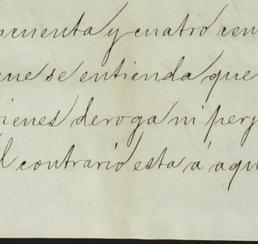 ncuenta y cuatro cen
ue se entienda que
ienes deroga ni perj
l contrario esta á aqu